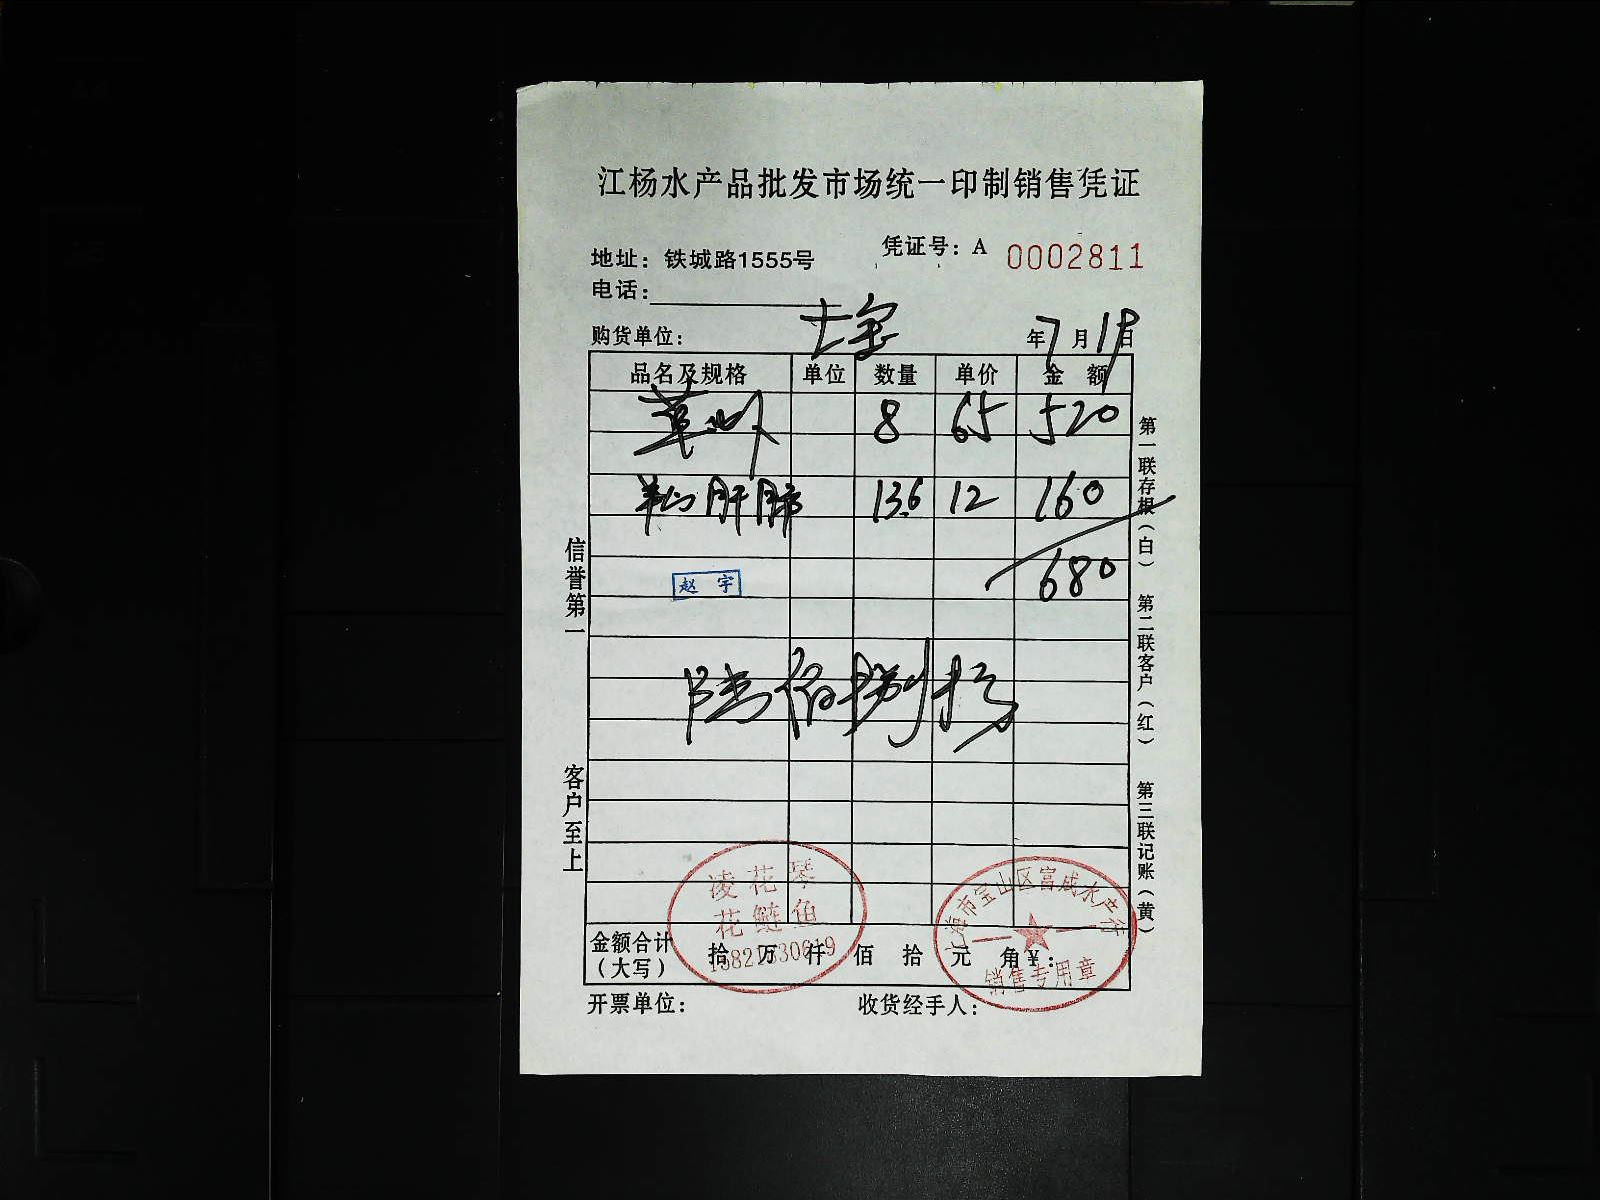 江杨水产品批发市场统一印制销售凭证
凭证号：A 0002811
地址：铁城路1555号
电话：
购货单位：
年7月19日
品名及规格 单位 数量 单价 金额
8 65 520
肝肺 13.6 12 160
680
赵宇
陆佰捌拾
信誉第一
客户至上
第一联存根（白）
第二联客户（红）
第三联记账（黄）
凌花琴
花鲢鱼
上海市宝山区富成水产行
销售专用章
金额合计（大写） 拾 万 仟 佰 拾 元 角¥：
开票单位：
收货经手人：